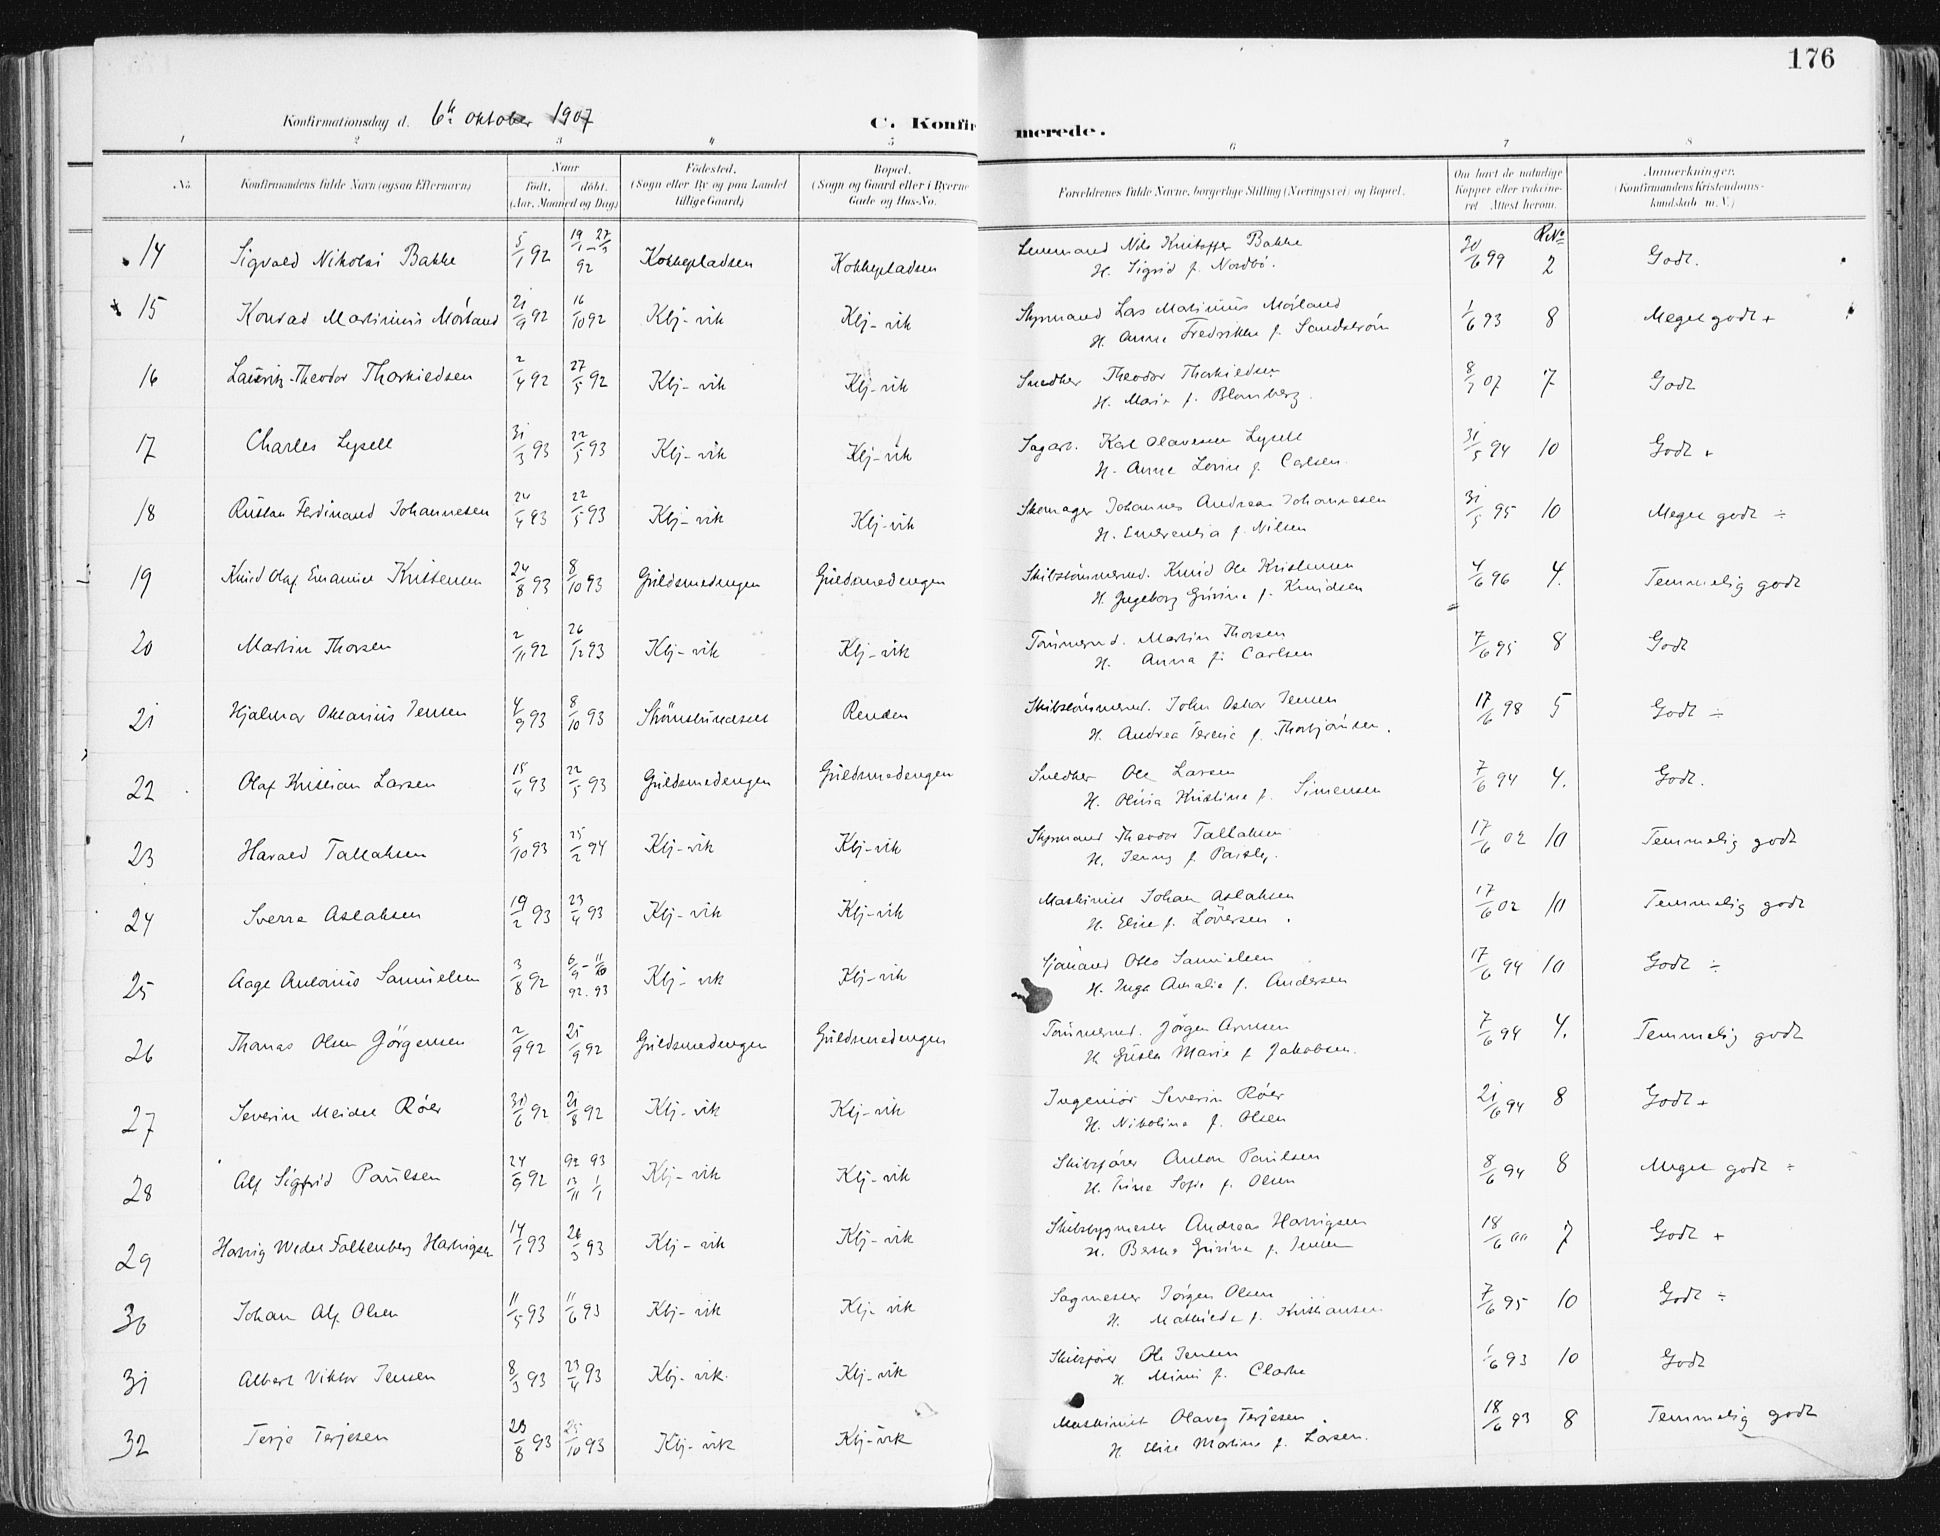 176
Konfirmationsdag d. 6te oktober 1907
C. Konfirmerede.
1 2 3 4 5 6 7 8
No. Konfirmandens fulde Navn (ogsaa Efternavn) Naar födt. döbt. (Aar, Maaned og Dag) Födested. (Sogn eller By og paa Landet tillige Gaard) Bopæl. (Sogn og Gaard eller i Byerne Gade og Hus-No. Forældrenes fulde Navne, borgerlige Stilling (Næringsvei) og Bopæl. Om havt de naturlige Kopper eller vakcineret. Attest herom. Anmærkninger. (Konfirmandens Kristendomskundskab m. V.)
14 Sigvald Nikolai Bakke 5/1 92 19/1 - 27/3 92 Kokkepladsen Kokkepladsen Lensmand Nils Kristoffer Bakke 20/6 99 R.No 2 Godt.
H. Sigrid f. Nordbö.
15 Konrad Martinius Mörland 21/9 92 16/10 92 Kbj-vik Kbj-vik Styrmand Lars Martinius Mörland 1/6 93 8 Meget godt +
H. Anne Fredrikke f. Sandström
16 Lauritz Theodor Thorkildsen 2/4 92 27/5 92 Kbj-vik Kbj-vik Snedker Theodor Thorkildsen 8/7 07 7 Godt
H. Marie f. Blomberg.
17 Charles Lysell 31/3 93 22/5 93 Kbj-vik Kbj-vik Sagarb. Karl Olavesen Lysell 31/5 94 10 Godt +
H. Anne Lovise f. Carlsen.
18 Ferdinand Johannesen 24/4 93 22/5 93 Kbj-vik Kbj-vik Skomager Johannes Andreas Johannesen 31/5 95 10 Meget godt ÷
H. Emerentia f. Nilsen
19 Knud Olaf Emanuel Kristensen 24/8 93 8/10 93 Guldsmedengen Guldsmedengen Skibstömmermd. Knud Ole Kristensen 4/6 96 4. Temmelig godt
H. Ingeborg Gurine f. Knudsen
20 Martin Thorsen 2/11 92 26/12 93 Kbj-vik Kbj-vik Tömmermd. Martin Thorsen 7/6 95 8 Godt
H. Anna f. Carlsen
21 Hjalmar Oktavius Jensen 4/9 93 8/10 93 Renden Skibstömmermd. John Oskar Jensen 17/6 98 5 Godt ÷
H. Andrea Teresie f. Thorbjörnsen.
22 Olaf Kristian Larsen 15/4 93 22/5 93 Guldsmedengen Guldsmedengen Snedker Ole Larsen 7/6 94 4. Godt.
H. Olivia Kristine f. Simensen
23 Harald Tallaksen 5/10 93 25/2 94 Kbj-vik Kbj-vik Styrmand Theodor Tallaksen 17/6 02 10 Temmelig godt
H. Jenny f. Paisley.
24 Sverre Aslaksen 19/2 93 23/4 93 Kbj-vik Kbj-vik Maskinist Johan Aslaksen 17/6 02 10 Temmelig godt
H. Elise f. Löversen.
25 Aage Antonius Samuelsen 3/8 92 6/9 - 11/10 92. 93 Kbj-vik Kbj-vik Sjömand Otto Samuelsen 17/6 94 10 Godt ÷
H. Inga Amalie f. Andersen
26 Thomas Olsen Jörgensen 2/9 92 25/9 92 Guldsmedengen Guldsmedengen Tömmermd. Jörgen Arnesen 7/6 94 4. Temmelig godt
H. Marie f. Jakobsen.
27 Severin Meidel Röer 30/6 92 21/8 92 Kbj-vik Kbj-vik Ingeniör Severin Röer 21/6 94 8 Godt +
H. Nikoline f. Olsen
28 Alf Sigfrid Paulsen 24/9 92 92 93 13/11 1/1 Kbj-vik Kbj-vik Skibsförer Anton Paulsen 8/6 94 8 Meget godt ÷
H. Trine Sofie f. Olsen
29 Hartvig Wedel Falkenberg Hartvigsen 14/1 93 26/3 93 Kbj-vik Kbj-vik Skibsbygmester Andreas Hartvigsen 18/6 00 7 Godt +
H. Gurine f. Jensen
30 Johan Alf Olsen 11/5 93 11/6 93 Kbj-vik Kbj-vik Sagmester Jörgen Olsen 7/6 95 10 Godt ÷
H. Mathilde f. Kristiansen
31 Albert Viktor Jensen 8/3 93 23/4 93 Kbj-vik. Kbj-vik Skibsförer Ole Jensen 1/6 93 10 Godt
H. Mimi f. Clarke
32 Terje Terjesen 23/8 93 25/10 93 Kbj-vik Kbj-vik Maskinist Olaves Terjesen 18/6 93 8 Temmelig godt
H. Elise Martine f. Larsen.